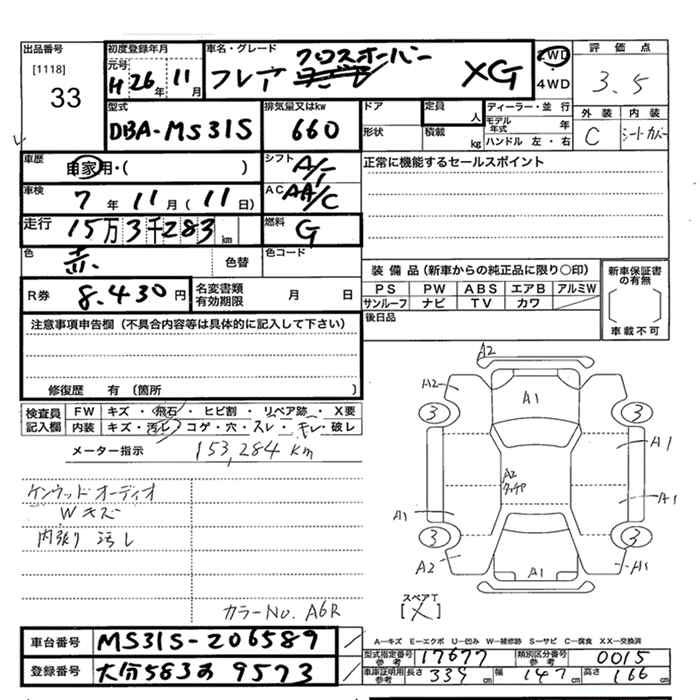 出品番号
[1118]
33
初度登録年月
元号
H26年11月
車名・グレード
クロスオーバー
フレア
XG
2WD
・
4WD
評価点
3.5
外装 内装
C シートカバー
型式
DBA-MS31S
排気量又はkw
660
ドア
形状
定員
人
積載
kg
ディーラー・並行
モデル年式 年
ハンドル 左・右
車歴
自家用・( )
シフト
A/T
正常に機能するセールスポイント
車検
7年11月(11日)
AC
AA/C
走行
15万3千283km
燃料
G
色
赤
色替
色コード
R券
8.430円
名変書類有効期限 月 日
装備品(新車からの純正品に限り〇印)
PS PW ABS エアB アルミW
サンルーフ ナビ TV カワ
新車保証書の有無
車載不可
後日品
注意事項申告欄(不具合内容等は具体的に記入して下さい)
修復歴 有(箇所
検査員記入欄
FW キズ・飛石・ヒビ割・リペア跡・X要
内装 キズ・汚レ・コゲ・穴・スレ・キレ・破レ
メーター指示
153,284km
ケンウッドオーディオ
Wキズ
内張り 汚レ
カラーNo. A6R
A2
A2
A1
3
3
A1
A2
タッチア
A1
A1
3
3
A2
A1
A1
スペアT
[X]
車台番号
MS31S-206589
登録番号
大分583お 9573
A−キズ E−エクボ U−凹み W−補修跡 S−サビ C−腐食 XX−交換済
型式指定番号参考 17677 類別区分番号参考 0015
車庫証明用参考 長さ 339cm 幅 147cm 高さ 166cm